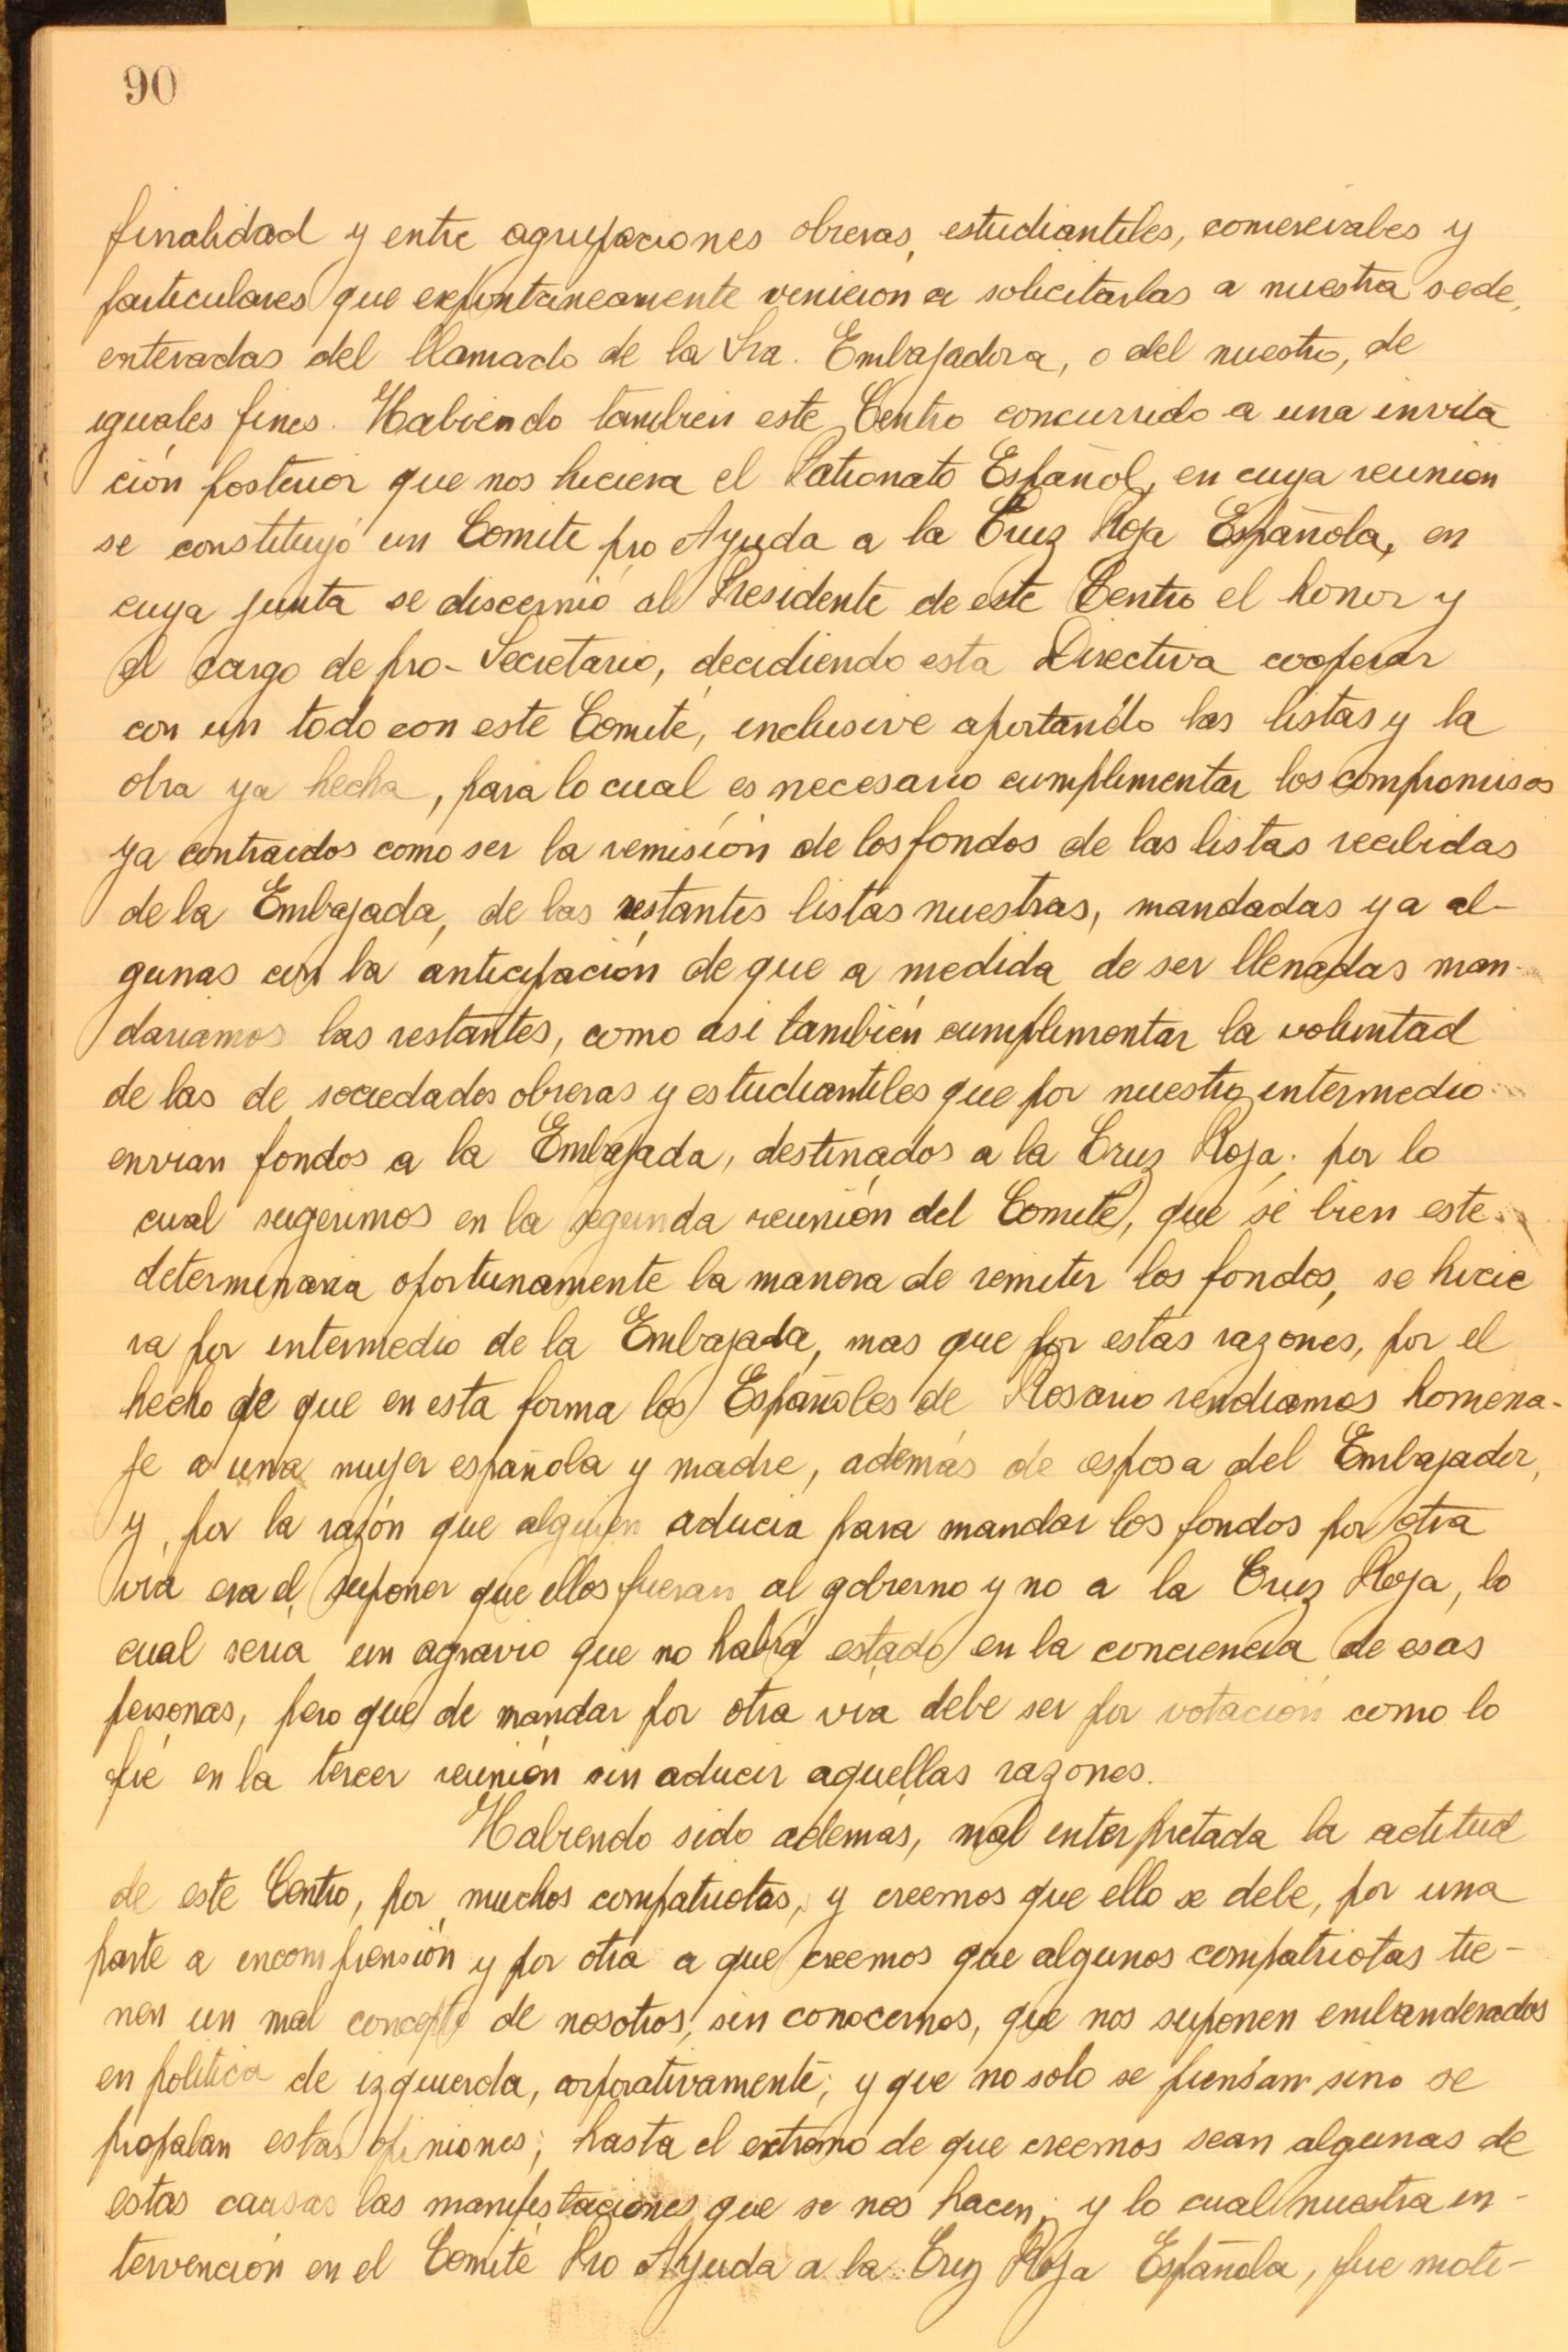 90
finalidad y entre agrupaciones obreras, estudiantiles, comerciales y
particulares que expontaneamente vinieron a solicitarlas a nuestra sede,
enteradas del llamado de la Sra. Embajadora, o del nuestro, de
iguales fines. Habiendo tambien este Centro concurrido a una invita
ción posterior que nos hiciera el Patronato Español, en cuya reunion
se constituyó un Comite pro Ayuda a la Cruz Roja Española, en
cuya junta se discernió al Presidente de este Centro el honor y
el cargo de pro-Secretario, decidiendo esta Directiva cooperar
con un todo con este Comité, inclusive aportando las listas y la
obra ya hecha, para lo cual es necesario cumplimentar los compromisos
ya contraidos como ser la remisión de los fondos de las listas recibidas
de la Embajada, de las restantes listas nuestras, mandadas ya al-
gunas con la anticipación de que a medida de ser llenadas man-
dariamos las restantes, como asi también cumplimentar la voluntad
de las de sociedades obreras y estudiantiles que por nuestro intermedio
envian fondos a la Embajada, destinados a la Cruz Roja; por lo
cual sugerimos en la segunda reunión del Comité, que si bien este
determinaria oportunamente la manera de remitir los fondos, se hicie
ra por intermedio de la Embajada, mas que por estas razones, por el
hecho de que en esta forma los Españoles de Rosario rendiamos homena-
je a una mujer española y madre, además de esposa del Embajador,
y, por la razón que alguien aducia para mandar los fondos por otra
via era el suponer que ellos fueran al gobierno y no a la Cruz Roja, lo
cual seria un agravio que no habrá estado en la conciencia de esas
personas, pero que de mandar por otra via debe ser por votación como lo
fué en la tercer reunión sin aducir aquellas razones.
Habiendo sido además, mal interpretada la actitud
de este Centro, por muchos compatriotas, y creemos que ello se debe, por una
parte a incomprensión y por otra a que creemos que algunos compatriotas tie-
nen un mal concepto de nosotros, sin conocernos, que nos suponen embanderados
en politica de izquierda, corporativamente; y que no solo se piensan sino se
propalan estas opiniones; hasta el extremo de que creemos sean algunas de
estas causas las manifestaciones que se nos hacen; y lo cual nuestra in-
tervención en el Comité Pro Ayuda a la Cruz Roja Española, fue moti-